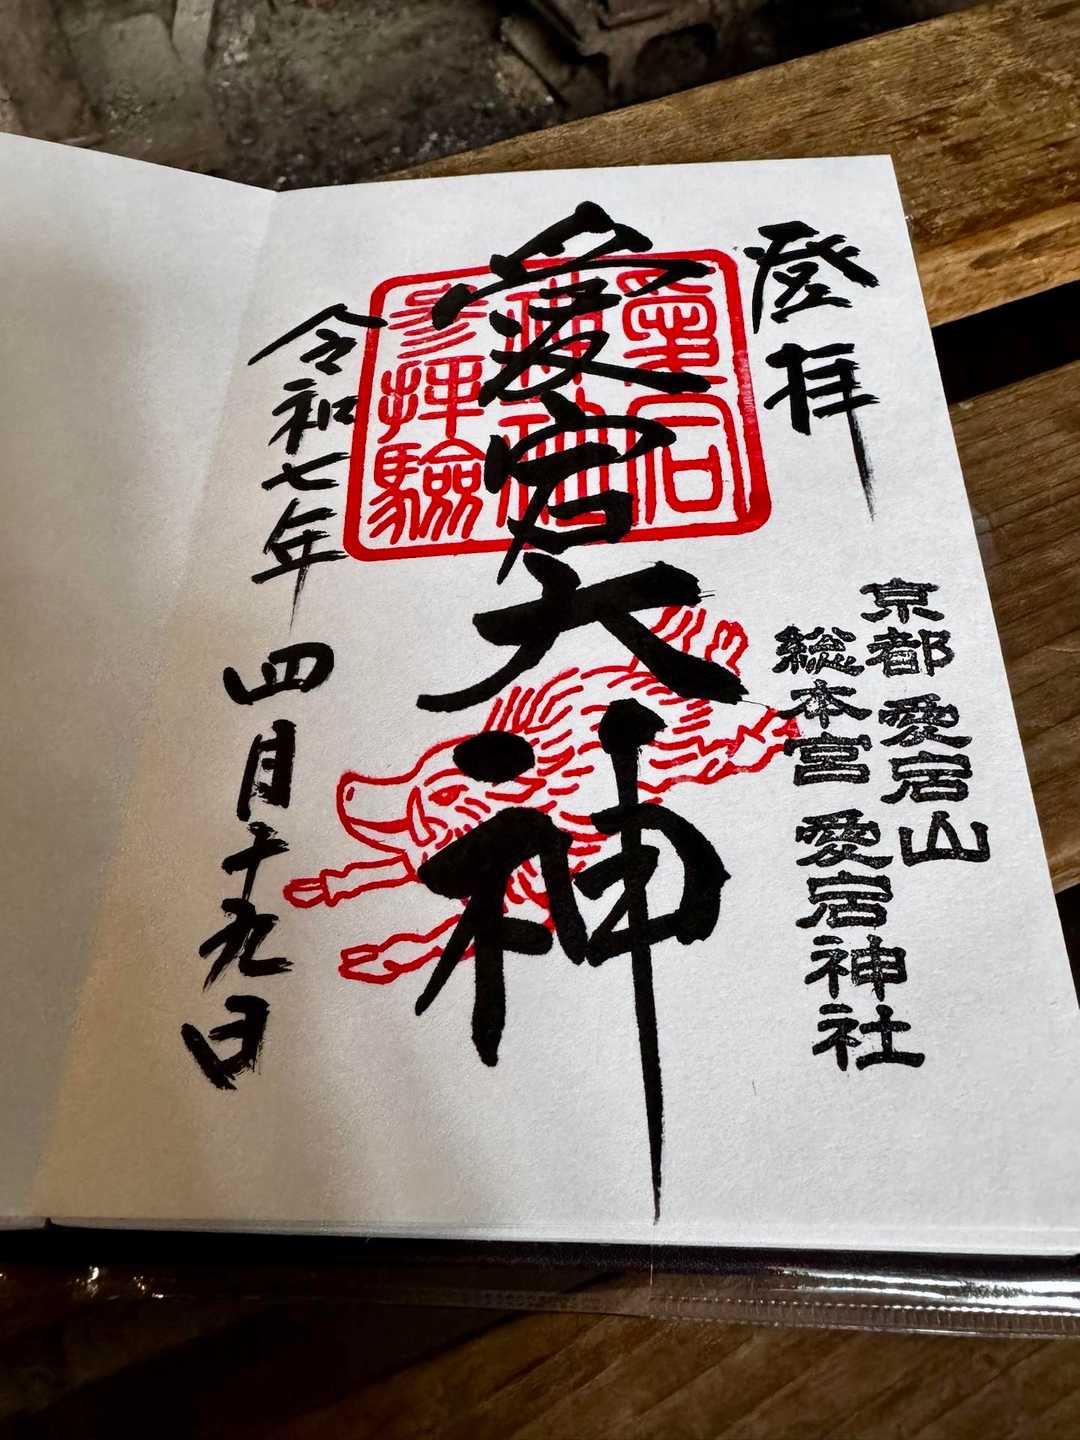 登拝
京都愛宕山
総本宮 愛宕神社
愛宕大神
愛宕
神社
参拝驗
令和七年
四月十九日